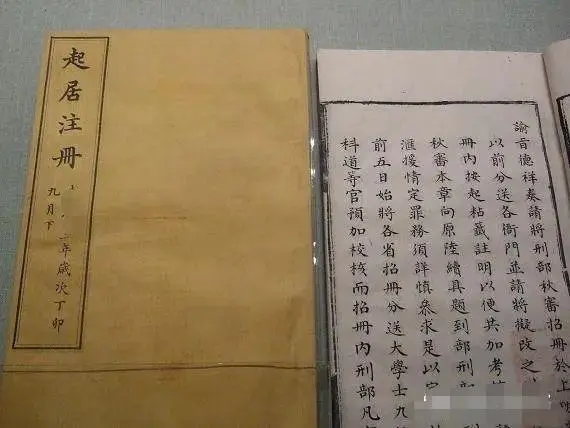 起居注冊
二年歲次丁卯
九月下
諭音德祥奏請將刑部秋審招冊於上
以前分送各衙門並請將擬改之
冊內按起粘籤註明以便共加考
秋審本章向原陸續具題到部刑
滙援情定罪務須詳慎參求是以
前五日始將各省招冊分送大學士九
科道等官預加校核而招冊內刑部凡